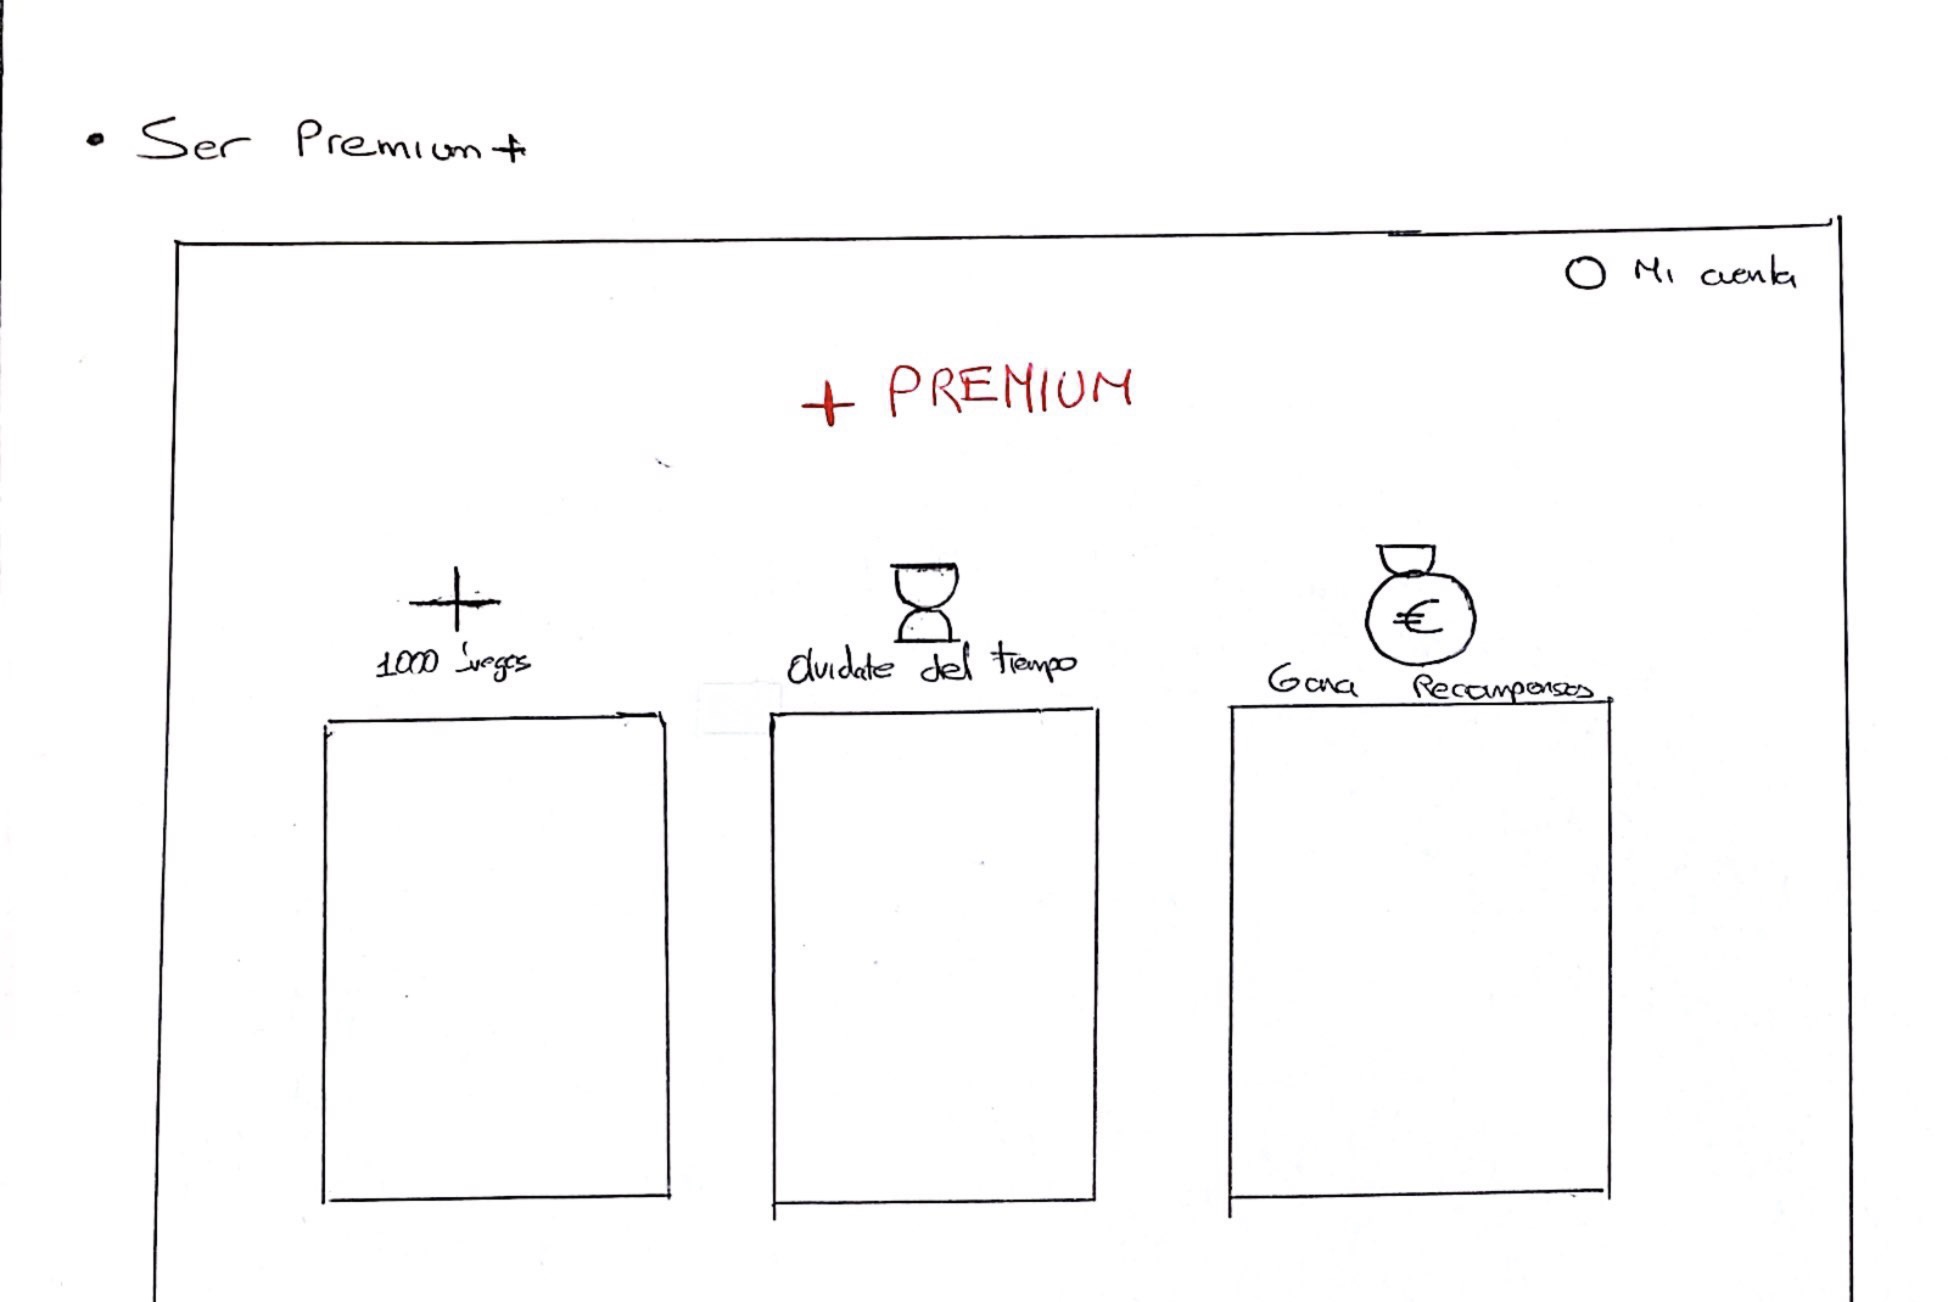 • Ser Premium+
Mi cuenta
+ PREMIUM
€
1000 juegos
Olvidate del tiempo
Gana Recompensas